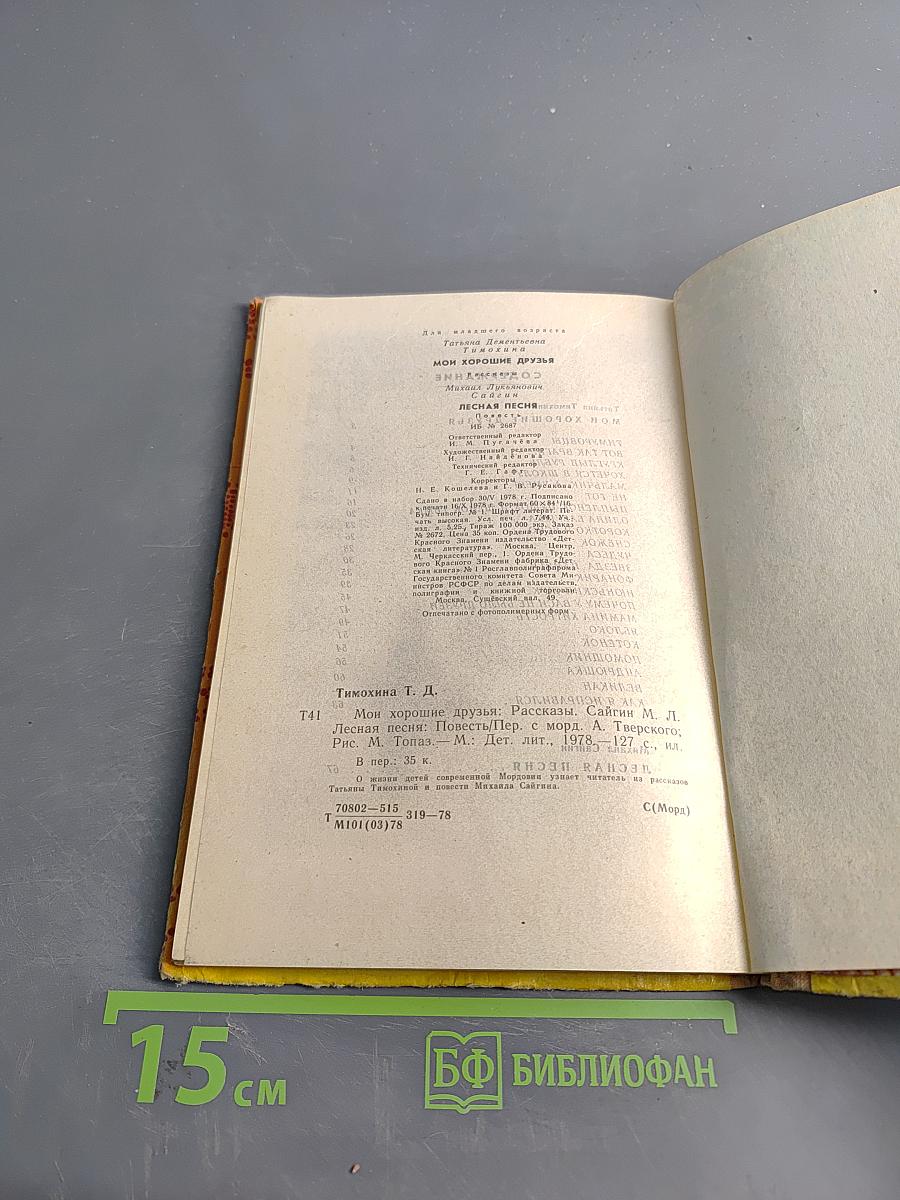 Для младшего возраста
Татьяна Дементьевна
Тимохина
МОИ ХОРОШИЕ ДРУЗЬЯ
Рассказы
Михаил Лукьянович
Сайгин
ЛЕСНАЯ ПЕСНЯ
Повесть
ИБ № 2687
Ответственный редактор
И. М. Пугачёва
Художественный редактор
И. Г. Найдёнова
Технический редактор
Г. Е. Гафт
Корректоры
Н. Е. Кошелева и Г. В. Русакова
Сдано в набор 30/V 1978 г. Подписано
к печати 16/X 1978 г. Формат 60×84¹/16.
Бум. типогр. № 1. Шрифт литерат. Пе-
чать высокая. Усл. печ. л. 7,44. Уч.-
изд. л. 5,25. Тираж 100 000 экз. Заказ
№ 2672. Цена 35 коп. Ордена Трудового
Красного Знамени издательство «Дет-
ская литература». Москва, Центр,
М. Черкасский пер., 1. Ордена Трудо-
вого Красного Знамени фабрика «Дет-
ская книга» № 1 Росглавполиграфпрома
Государственного комитета Совета Ми-
нистров РСФСР по делам издательств,
полиграфии и книжной торговли.
Москва, Сущёвский вал, 49.
Отпечатано с фотополимерных форм
Тимохина Т. Д.
Т41 Мои хорошие друзья: Рассказы. Сайгин М. Л.
Лесная песня: Повесть/Пер. с морд. А. Тверского;
Рис. М. Топаз.— М.: Дет. лит., 1978.—127 с., ил.
В пер.: 35 к.
О жизни детей современной Мордовии узнает читатель из рассказов
Татьяны Тимохиной и повести Михаила Сайгина.
Т 70802—515 319—78
М101(03)78
С(Морд)
15 см
БФ БИБЛИОФАН